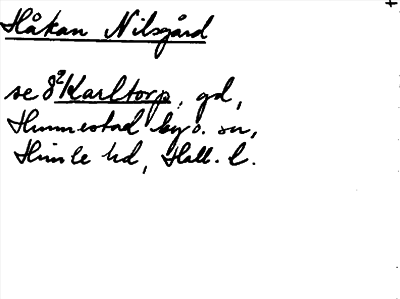 Håkan Nilsgård
se 8² Karltorp, gd,
Hunnestad by o. sn,
Himle hd, Hall. l.